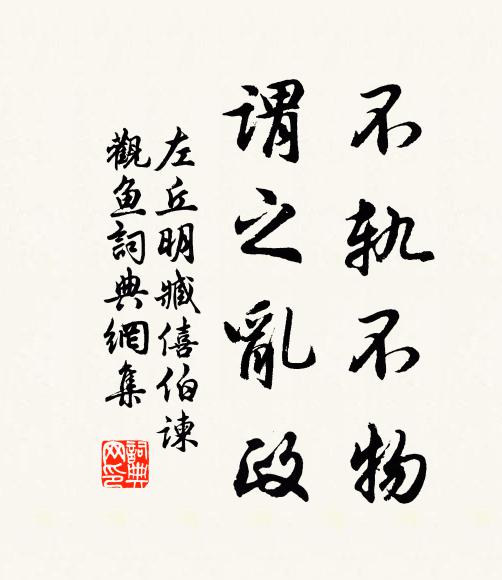 不軌不物
謂之亂政
左丘明臧僖伯諫
觀魚詞典網集
詞典
网印